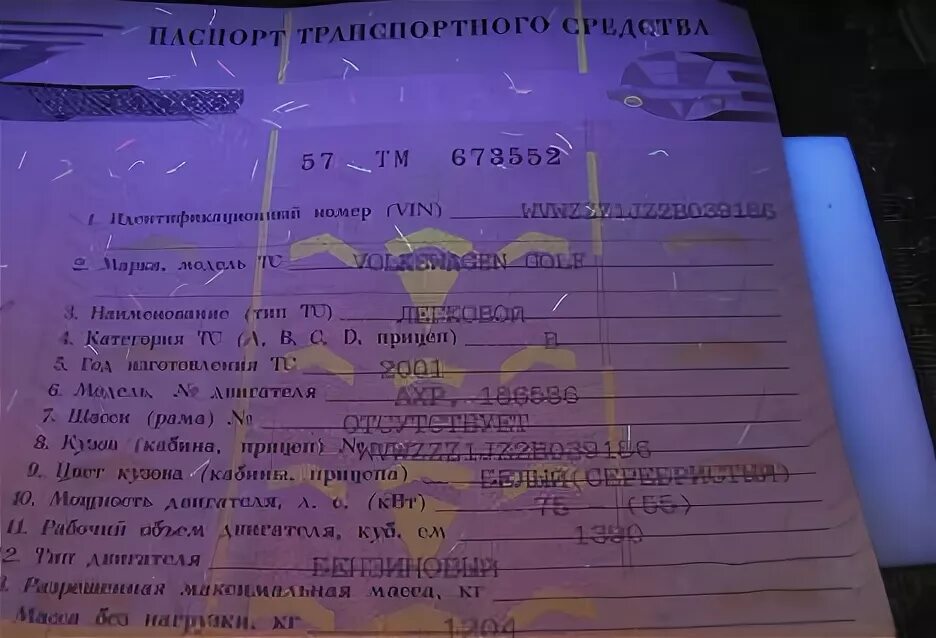 ПАСПОРТ ТРАНСПОРТНОГО СРЕДСТВА
57 ТМ 673552
1. Идентификационный номер (VIN) WVWZZZ1JZ2B039186
2. Марка, модель ТС VOLKSWAGEN GOLF
3. Наименование (тип ТС) ЛЕГКОВОЙ
4. Категория ТС (А, В, С, D, прицеп) B
5. Год изготовления ТС 2001
6. Модель, № двигателя AXP, 186586
7. Шасси (рама) № ОТСУТСТВУЕТ
8. Кузов (кабина, прицеп) № WVWZZZ1JZ2B039186
9. Цвет кузова (кабины, прицепа) БЕЛЫЙ(СЕРЕБРИСТЫЙ)
10. Мощность двигателя, л. с. (кВт) 75 - (55)
11. Рабочий объем двигателя, куб. см 1390
2. Тип двигателя БЕНЗИНОВЫЙ
Разрешенная максимальная масса, кг
Масса без нагрузки, кг 1204